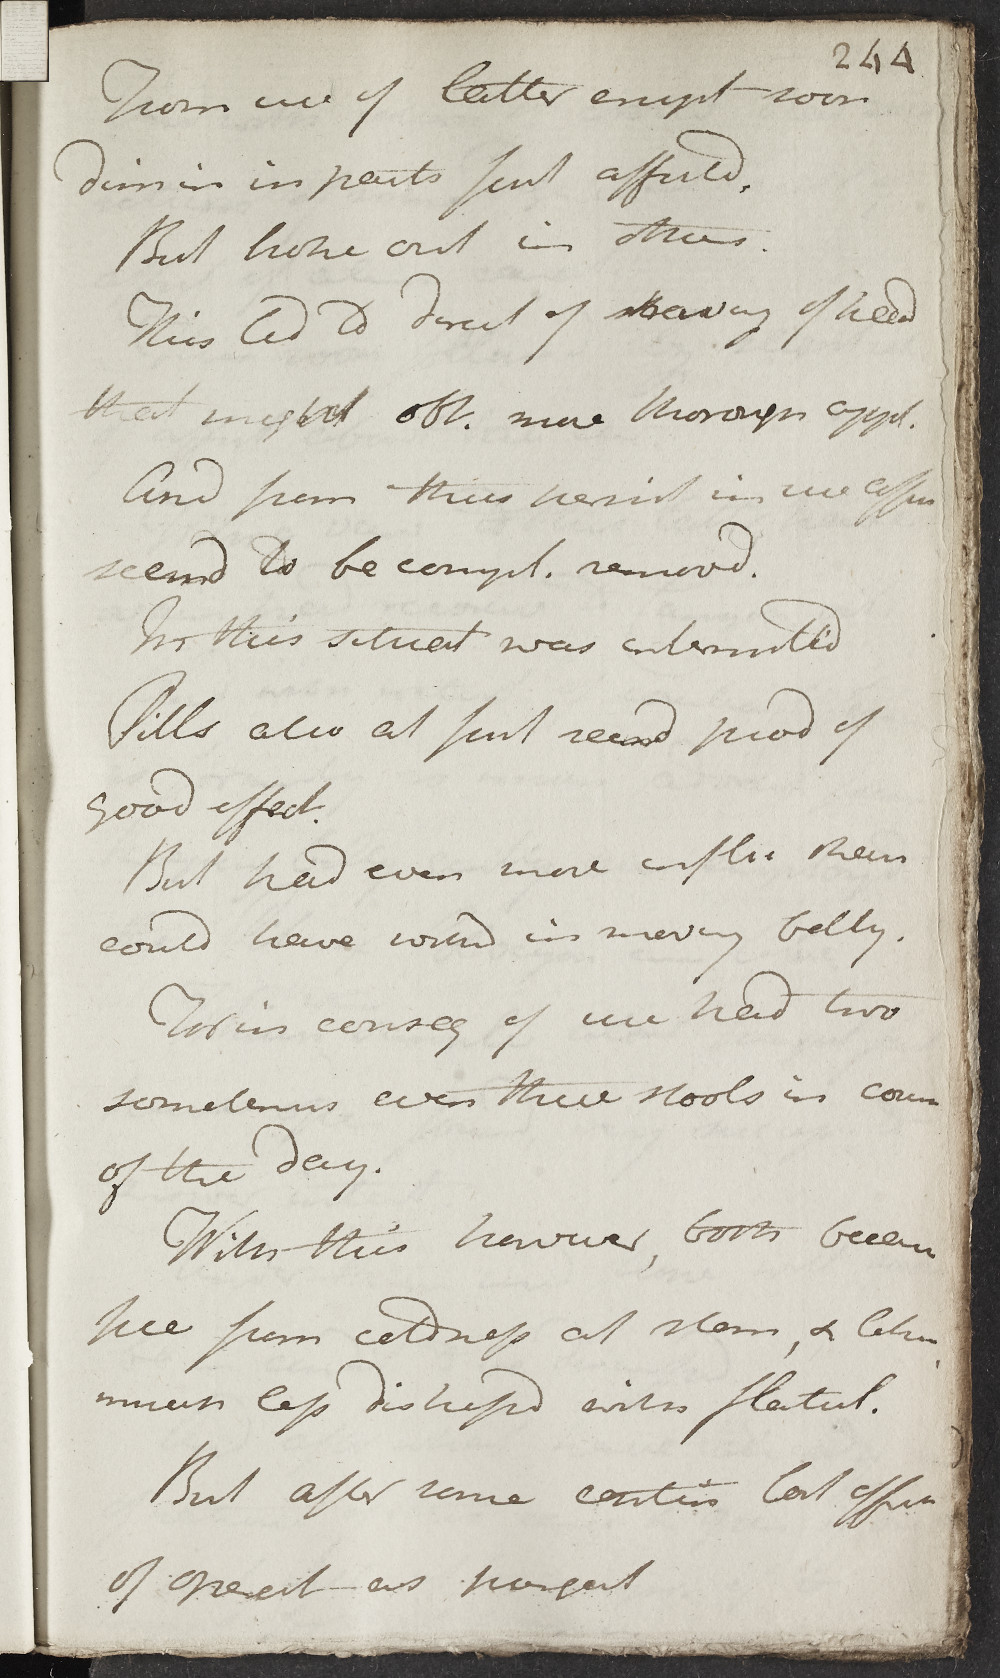 244
From use of latter erupt soon
dimin in parts first affectd.
But broke out in others.
This led to direct of shaving of head
that might obt. more thorough appl.
And from this period in use affec
seemd to be compl. removd.
In this situat was intermitted
Pills also at first seemd prod of
good effect.
But had even more influ than
could have wishd in moving belly.
For in conseq of use had two
sometimes even three stools in cours
of the day.
With this however, both becam
free from coldness at stom, &
much less distressd with flatul.
But after some contin lost
of operat as purgat